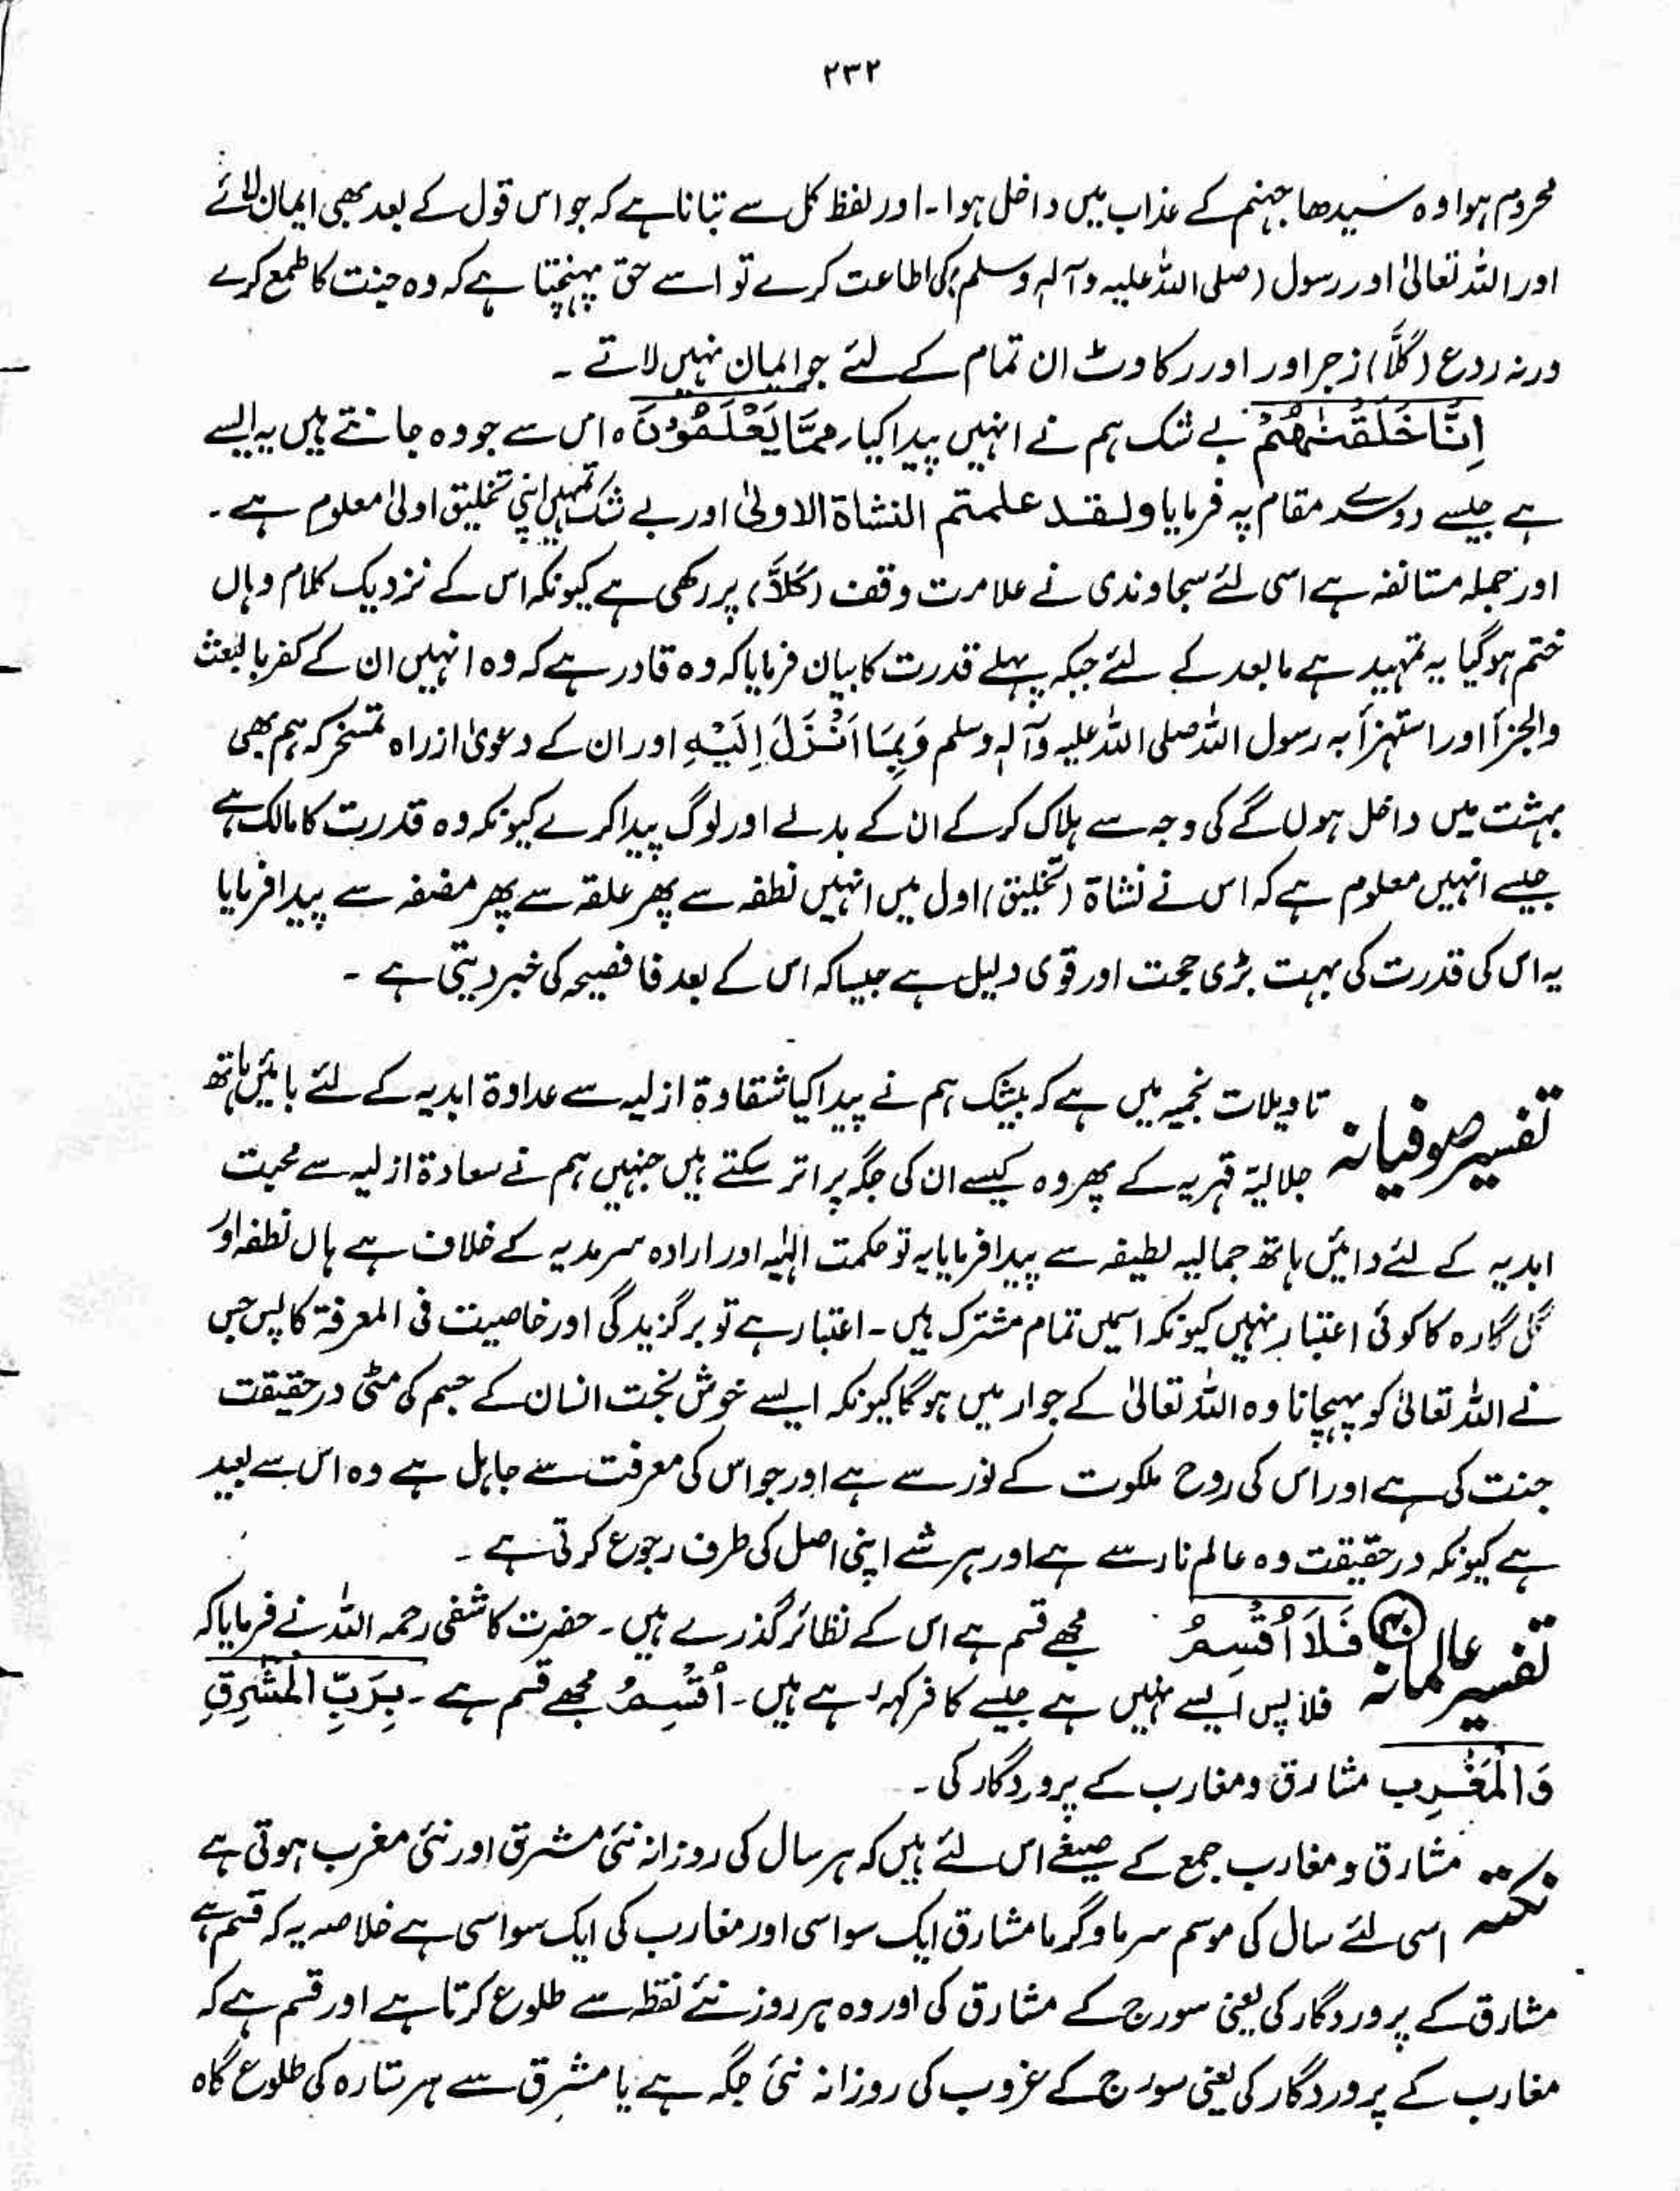 ۲۳۲
محروم ہوا وہ سیدھا جہنم کے عذاب میں داخل ہوا۔ اور لفظ کل سے بتانا ہے کہ جو اس قول کے بعد بھی ایمان لائے
اور اللہ تعالیٰ اور رسول (صلی اللہ علیہ وآلہٖ وسلم) کی اطاعت کرے تو اسے حق پہنچتا ہے کہ وہ جنت کا طمع کرے
ورنہ ردع (كَلَّا) زجر اور اور رکاوٹ ان تمام کے لئے جو ایمان نہیں لاتے ۔
اِنَّا خَلَقْنٰهُمْ بے شک ہم نے انہیں پیدا کیا، مِمَّا يَعْلَمُوْنَ ہ اس سے جو وہ جانتے ہیں یہ ایسے
ہے جیسے دوسرے مقام پہ فرمایا ولقد علمتم النشاة الاولیٰ اور بے شک تمہیں اپنی تخلیق اولیٰ معلوم ہے ۔
اور جملہ مستانفہ ہے اسی لئے سجاوندی نے علامت وقف (كَلَّا) پر رکھی ہے کیونکہ اس کے نزدیک کلام وہاں
ختم ہوگیا یہ تمہید ہے مابعد کے لئے جبکہ پہلے قدرت کا بیان فرمایا کہ وہ قادر ہے کہ وہ انہیں ان کے کفر بالبعث
والجزأ اور استہزأ بہ رسول اللہ صلی اللہ علیہ وآلہٖ وسلم وَبِمَا اَنْزَلَ اِلَيْهِ اور ان کے دعویٰ از راہ تمسخر کہ ہم بھی
بہشت میں داخل ہوں گے کی وجہ سے ہلاک کرکے ان کے بدلے اور لوگ پیدا کرے کیونکہ وہ قدرت کا مالک ہے
جیسے انہیں معلوم ہے کہ اس نے نشاۃ (تخلیق) اول میں انہیں نطفہ سے پھر علقہ سے پھر مضغہ سے پیدا فرمایا
یہ اس کی قدرت کی بہت بڑی حجت اور قوی دلیل ہے جیسا کہ اس کے بعد فا فصیحہ کی خبر دیتی ہے ۔
تفسیر صوفیانہ تاویلات نجمیہ میں ہے کہ بیشک ہم نے پیدا کیا شقاوۃ ازلیہ سے عداوۃ ابدیہ کے لئے بائیں ہاتھ
جلالیۃ قہریہ کے پھر وہ کیسے ان کی جگہ پر اتر سکتے ہیں جنہیں ہم نے سعادۃ ازلیہ سے محبت
ابدیہ کے لئے دائیں ہاتھ جمالیہ لطیفہ سے پیدا فرمایا یہ تو حکمت الٰہیہ اور ارادہ سرمدیہ کے خلاف ہے ہاں نطفہ اور
گل گارہ کا کوئی اعتبار نہیں کیونکہ اسمیں تمام مشترک ہیں۔ اعتبار ہے تو برگزیدگی اور خاصیت فی المعرفۃ کا پس جس
نے اللہ تعالیٰ کو پہچانا وہ اللہ تعالیٰ کے جوار میں ہوگا کیونکہ ایسے خوش بخت انسان کے جسم کی مٹی درحقیقت
جنت کی ہے اور اس کی روح ملکوت کے نور سے ہے اور جو اس کی معرفت سے جاہل ہے وہ اس سے بعید
ہے کیونکہ درحقیقت وہ عالم نار سے ہے اور ہر شے اپنی اصل کی طرف رجوع کرتی ہے ۔
تفسیر عالمانہ فَلَا اُقْسِمُ مجھے قسم ہے اس کے نظائر گذرے ہیں۔ حضرت کاشفی رحمہ اللہ نے فرمایا کہ
فلا پس ایسے نہیں ہے جیسے کافر کہہ رہے ہیں۔ اُقْسِمُ مجھے قسم ہے۔ بِرَبِّ الْمَشٰرِقِ
وَالْمَغٰرِبِ مشارق ومغارب کے پروردگار کی ۔
نکتہ مشارق و مغارب جمع کے صیغے اس لئے ہیں کہ ہر سال کی روزانہ نئی مشرق اور نئی مغرب ہوتی ہے
اسی لئے سال کی موسم سرما وگرما مشارق ایک سو اسی اور مغارب کی ایک سو اسی ہے خلاصہ یہ کہ قسم ہے
مشارق کے پروردگار کی یعنی سورج کے مشارق کی اور وہ ہر روز نئے نقطہ سے طلوع کرتا ہے اور قسم ہے کہ
مغارب کے پروردگار کی یعنی سورج کے غروب کی روزانہ نئی جگہ ہے یا مشرق سے ہر ستارہ کی طلوع گاہ